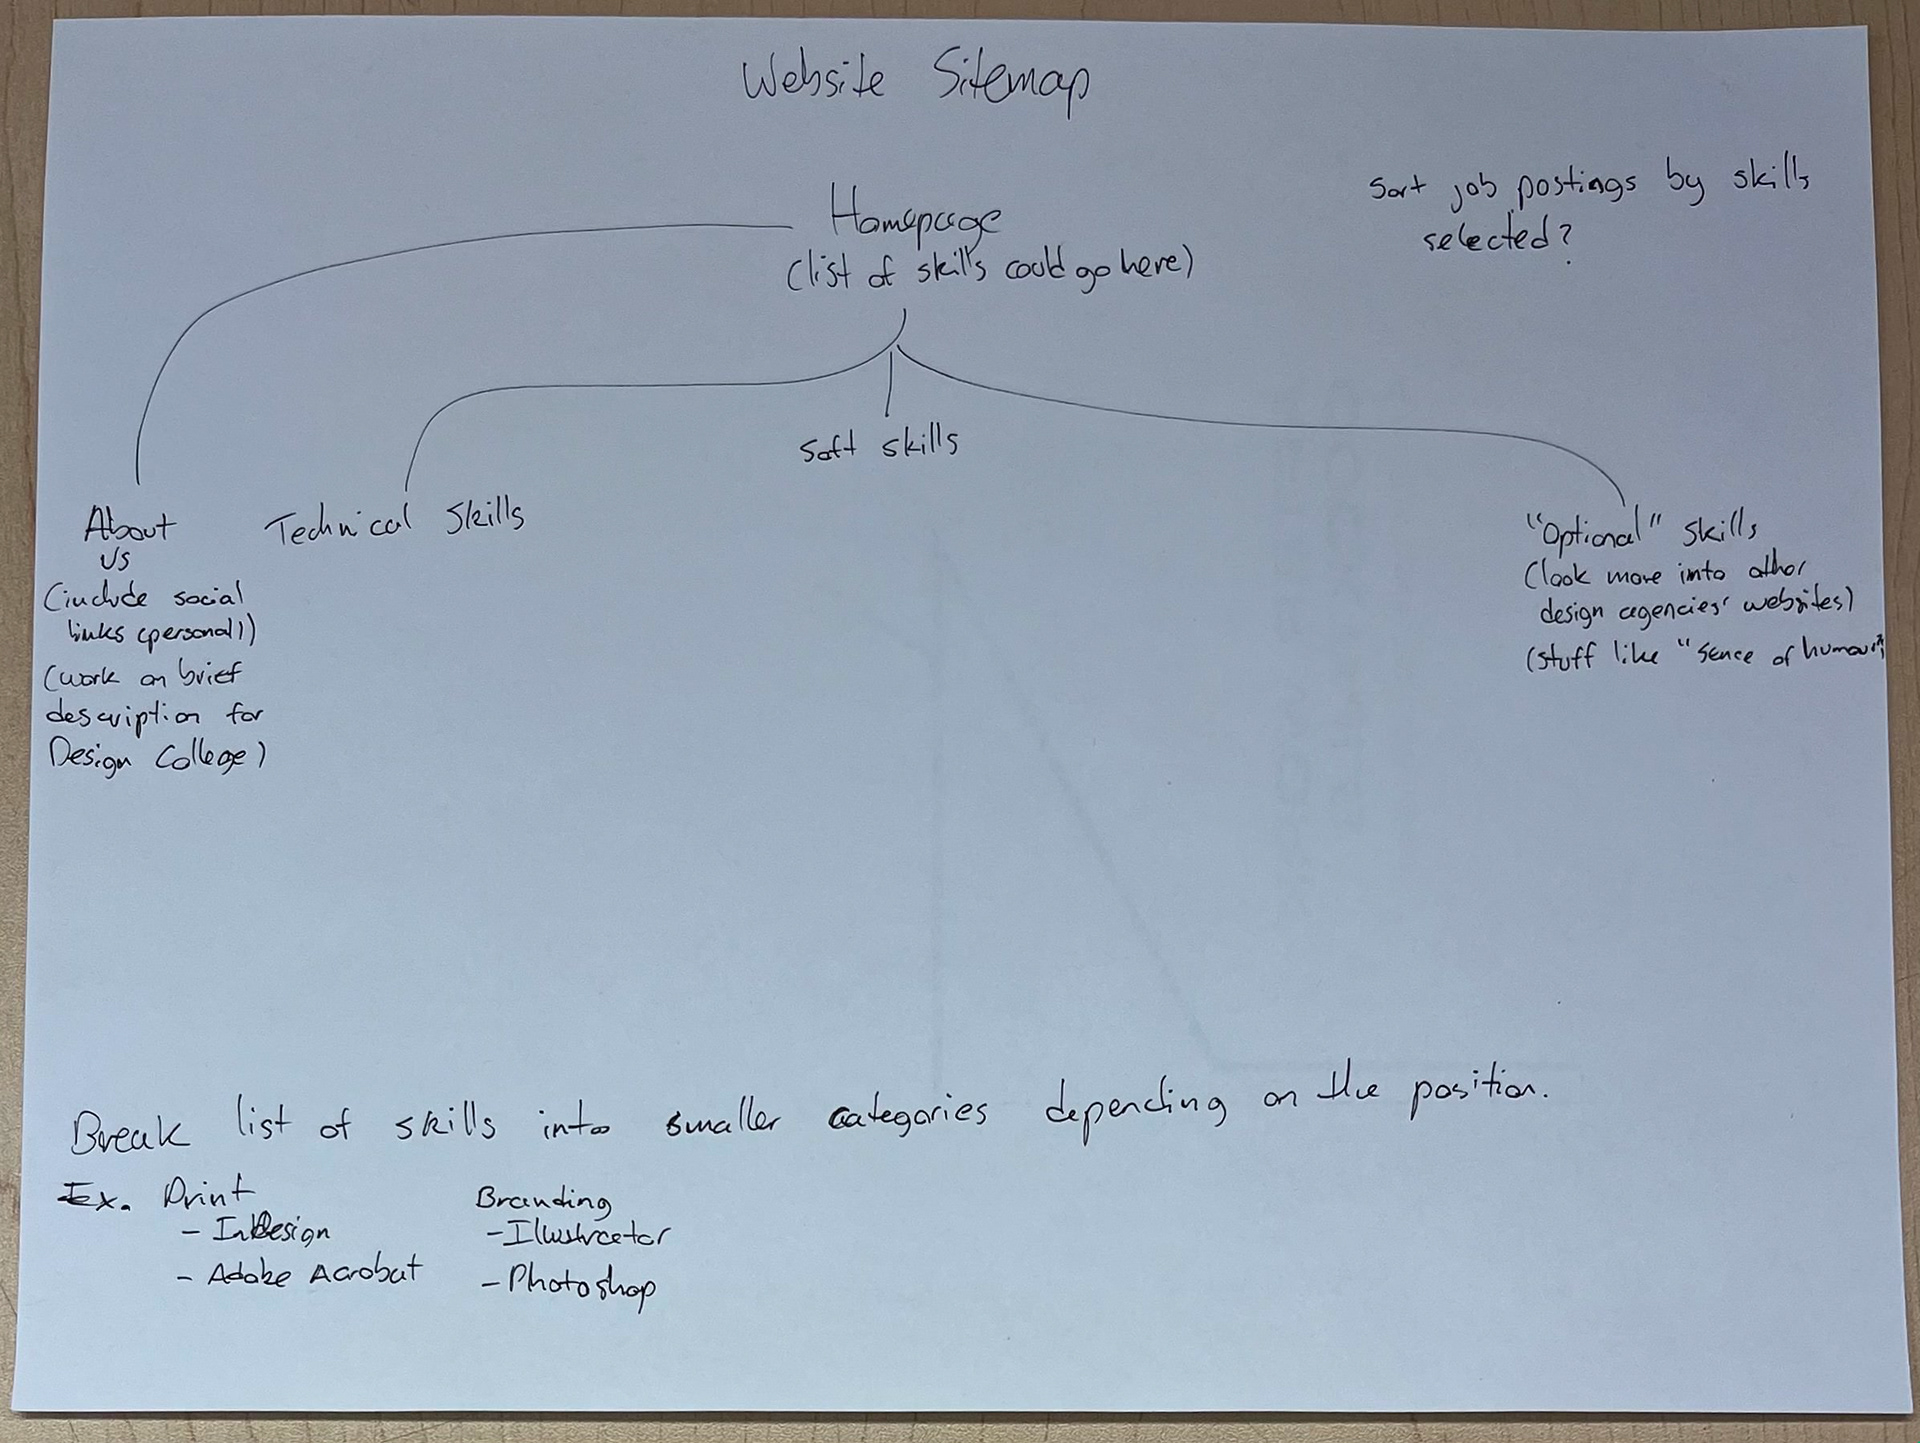 Website Sitemap
Sort job postings by skills
selected?
Homepage
(list of skills could go here)
Soft skills
About
us
Technical Skills
"Optional" skills
(look more into other
design agencies' websites)
(stuff like "sence of humour")
(include social
links (personal))
(work on brief
description for
Design College)
Break list of skills into smaller categories depending on the position.
Ex. Print
- InDesign
- Adobe Acrobat
Branding
- Illustrator
- Photoshop